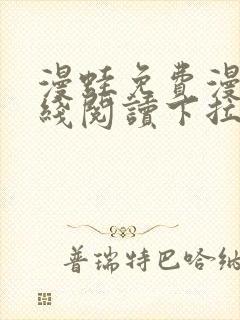 漫蛙免費漫
綫閱讀下拉
普瑞特巴哈納